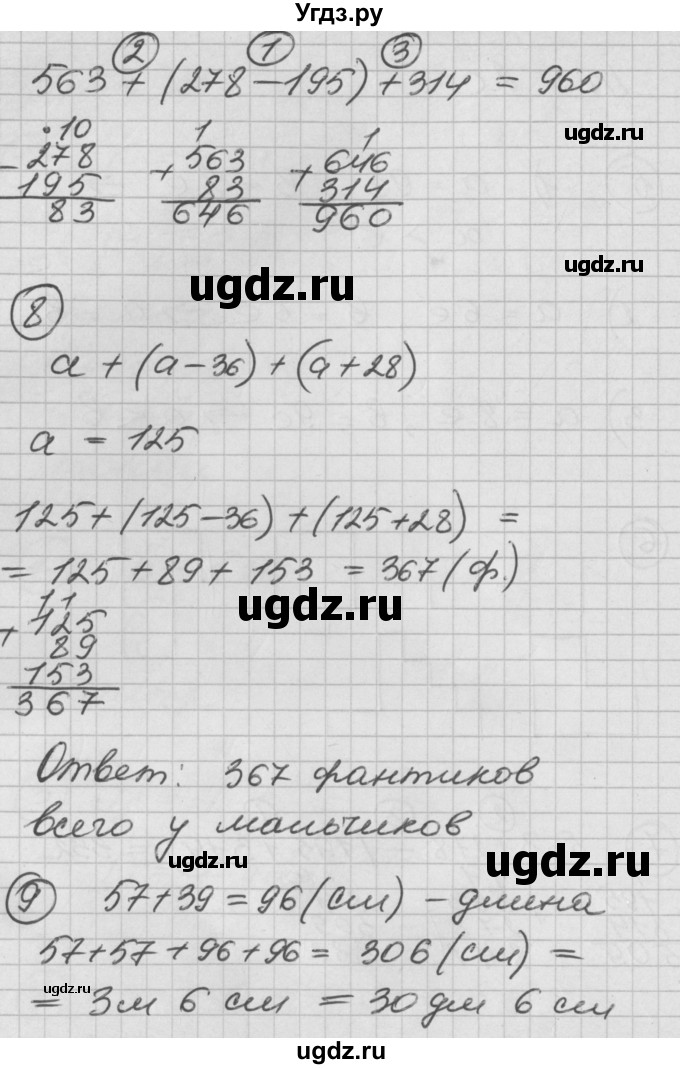 Угдз.ру
② ① ③
563 + (278 - 195) + 314 = 960
ugdz.ru
• 10 1 1
- 278 + 563 + 646
195 83 314
83 646 960
ugdz.ru
ugdz.ru
⑧
a + (a - 36) + (a + 28)
ugdz.ru
a = 125
125 + (125 - 36) + (125 + 28) =
= 125 + 89 + 153 = 367 (ф.)
ugdz.ru
11
+ 125
89
153
367
Ответ: 367 фантиков
всего у мальчиков
ugdz.ru
ugdz.ru
⑨ 57 + 39 = 96 (см) - длина
57 + 57 + 96 + 96 = 306 (см) =
= 3м 6 см = 30 дм 6 см
ugdz.ru
ugdz.ru